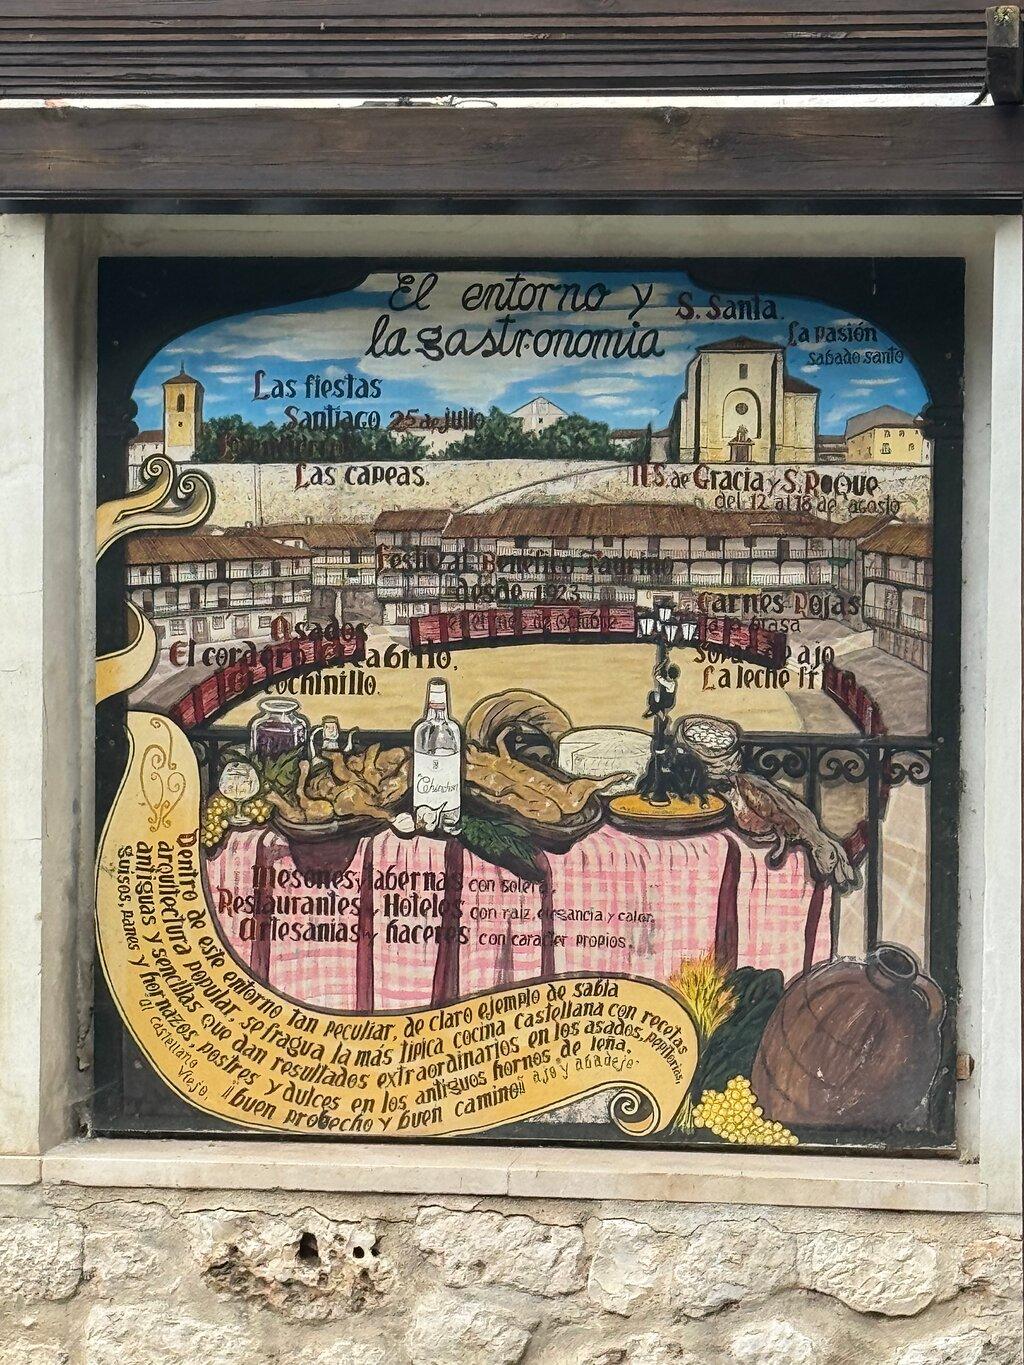 El entorno y
la gastronomia
S. Santa.
La pasión
sabado santo
Las fiestas
Santiago 25 de julio
Las capeas.
N.S. de Gracia y S. Roque
del 12 al 18 de agosto
Festival Benefico Taurino
desde 1923
en el mes de Octubre
Asados
El cordero, El cabrito,
El cochinillo.
Carnes Rojas
a la brasa
Sopas de ajo
La leche frita
Chinchón
Mesones y tabernas con solera,
Restaurantes y Hoteles con raiz, elegancia y calor.
Artesanias y haceres con caracter propios.
Dentro de este entorno tan peculiar, de claro ejemplo de sabia
arquitectura popular, se fragua la más tipica cocina castellana con recetas
antiguas y sencillas que dan resultados extraordinarios en los asados, pepitorias,
guisos, panes y hornazos, postres y dulces en los antiguos hornos de leña.
al castellano viejo. "buen probecho y buen camino" ajo y abadejo